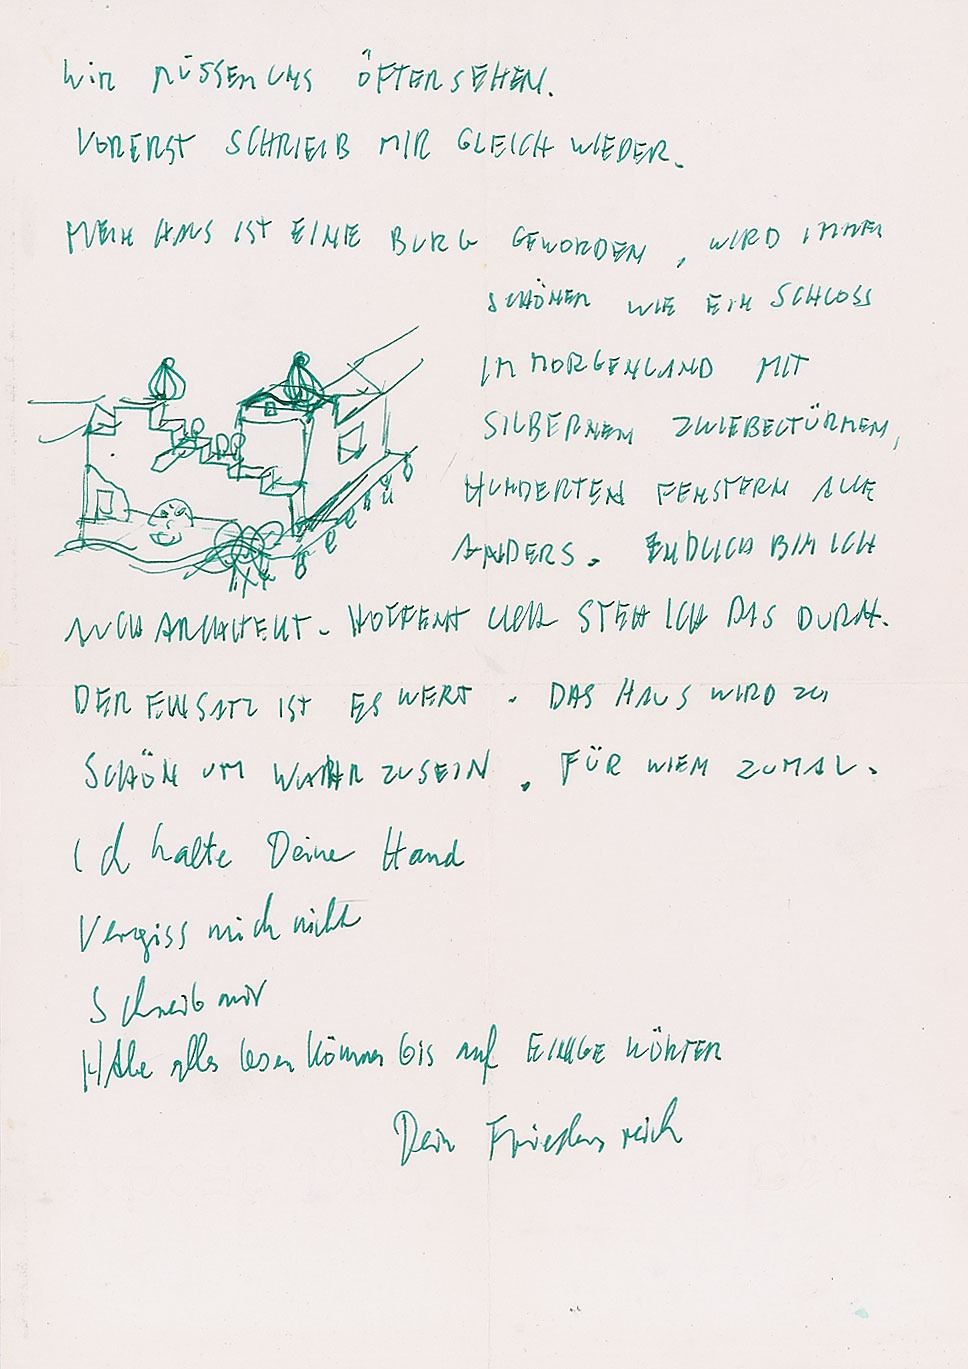 WIR MÜSSEN UNS ÖFTER SEHEN.
VORERST SCHREIB MIR GLEICH WIEDER.
MEIN HAUS IST EINE BURG GEWORDEN, WIRD IMMER
SCHÖNER WIE EIN SCHLOSS
IM MORGENLAND MIT
SILBERNEN ZWIEBELTÜRMEN,
HUNDERTEN FENSTERN ALLE
ANDERS. ENDLICH BIN ICH
AUCH ARCHITEKT. HOFFENTLICH STEH ICH DAS DURCH.
DER EINSATZ IST ES WERT. DAS HAUS WIRD ZU
SCHÖN UM WAHR ZU SEIN. FÜR WIEN ZUMAL.
Ich halte Deine Hand
Vergiss mich nicht
Schreib mir
HAbe alles lesen können bis auf EINIGE WÖRTER
Dein Friedensreich